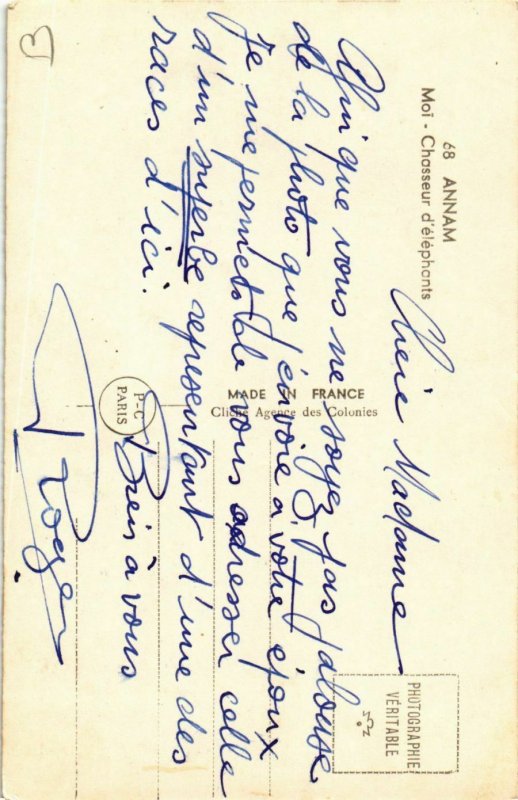 68 ANNAM
Moï - Chasseur d'éléphants
Chère Madame
Afin que vous ne soyez pas jalouse
de la photo que j'envoie a votre époux
je me permets de vous adresser celle
d'un superbe representant d'une des
races d'ici.
Bien à vous
Roger
MADE IN FRANCE
Cliché Agence des Colonies
P-C
PARIS
PHOTOGRAPHIE
VÉRITABLE